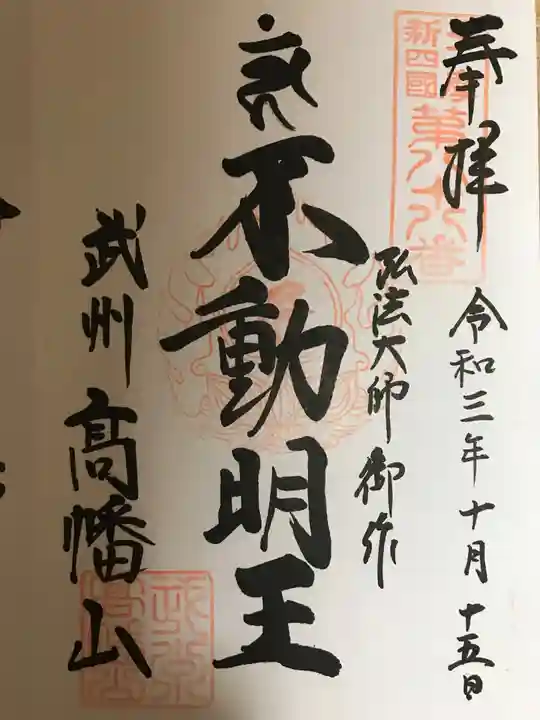 奉拝
新四國
第八十八番
令和三年十月十五日
弘法大師御作
不動明王
武州 高幡山